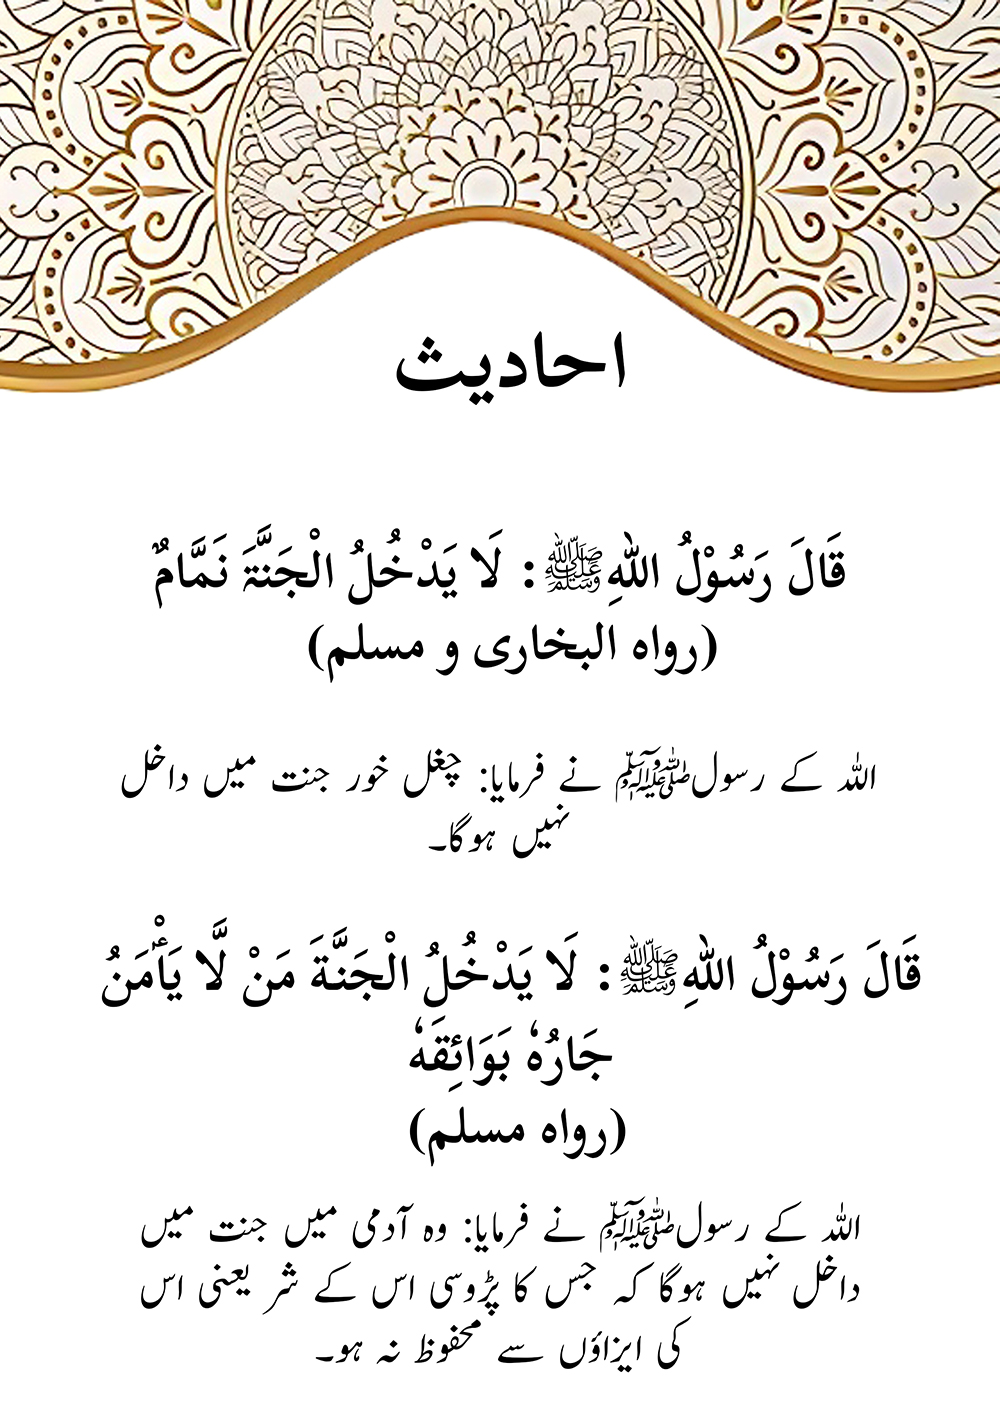 احادیث
قَالَ رَسُوْلُ اللهِ ﷺ : لَا يَدْخُلُ الْجَنَّۃَ نَمَّامٌ
(رواه البخاری و مسلم)
اللہ کے رسول ﷺ نے فرمایا: چغل خور جنت میں داخل
نہیں ہوگا۔
قَالَ رَسُوْلُ اللهِ ﷺ : لَا يَدْخُلُ الْجَنَّةَ مَنْ لَّا يَأْمَنُ
جَارُهٗ بَوَائِقَهٗ
(رواه مسلم)
اللہ کے رسول ﷺ نے فرمایا: وہ آدمی میں جنت میں
داخل نہیں ہوگا کہ جس کا پڑوسی اس کے شر یعنی اس
کی ایزاؤں سے محفوظ نہ ہو۔